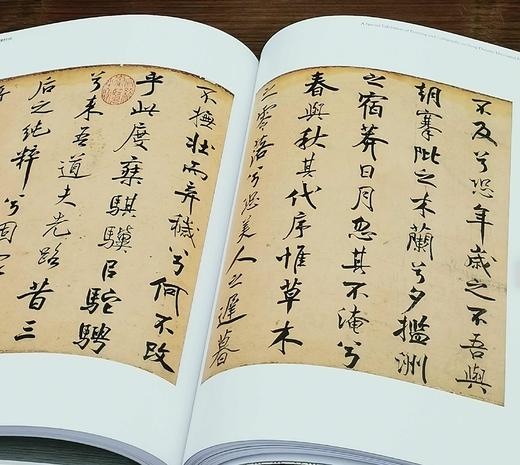 A Special Exhibition of Painting and Calligraphy
不及兮恐年歲之不吾與
朝搴阰之木蘭兮夕㩜洲
之宿莽日月忽其不淹兮
春與秋其代序惟草木
之零落兮恐美人之遲暮
不撫壯而棄穢兮何不改
乎此度乘騏驥以馳騁
兮來吾道夫先路昔三
后之純粹兮固